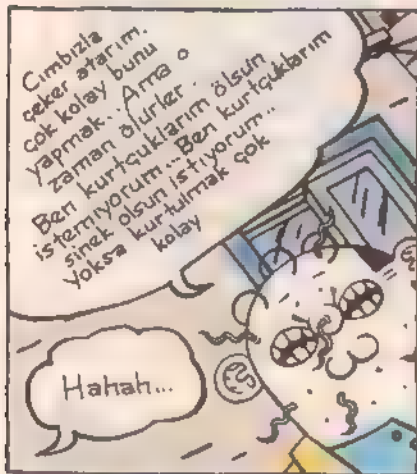 Cımbızla
çeker atarım.
Çok kolay bunu
yapmak.. Ama o
zaman ölürler.
Ben kurtçuklarım ölsün
istemiyorum... Ben kurtçuklarım
sinek olsun istiyorum..
Yoksa kurtulmak çok
kolay
Hahah...